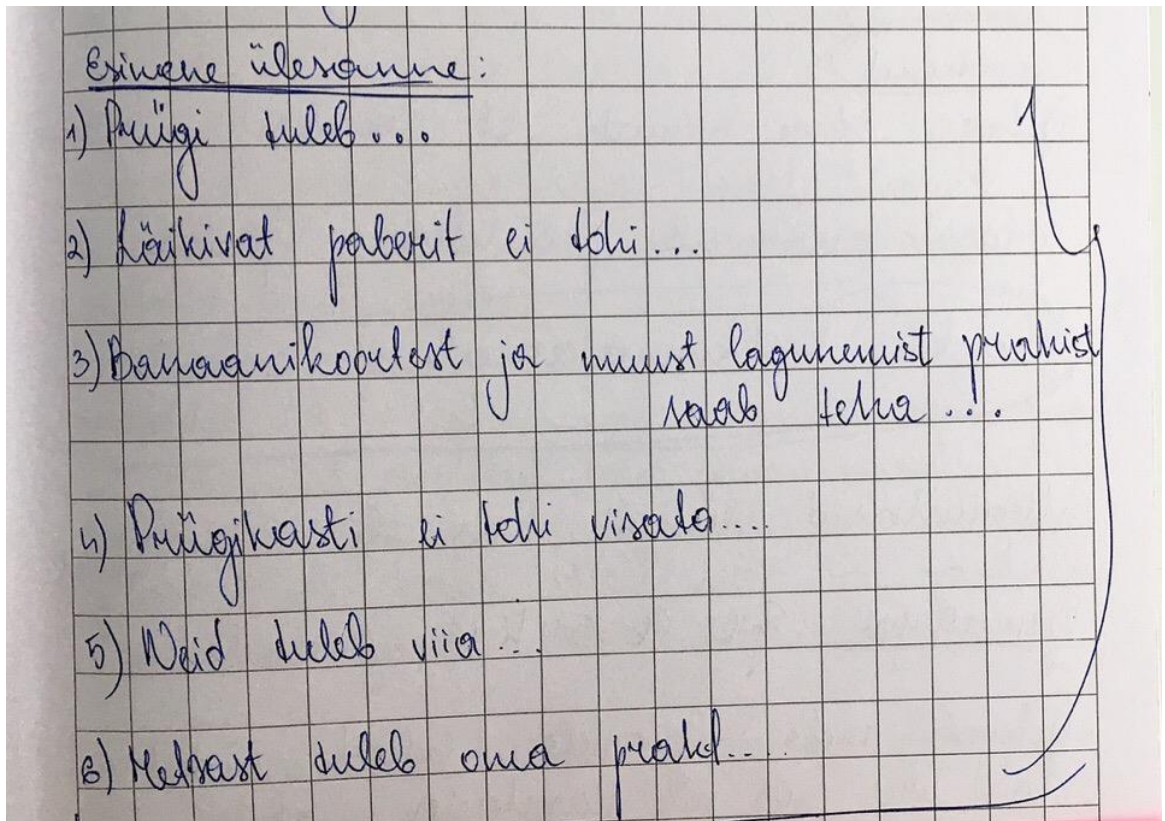 Esimene ülesanne:
1) Prügi tuleb...
2) Läikivat paberit ei tohi...
3) Banaanikoortest ja muust lagunemist prahist
saab teha ...
4) Prügikasti ei tohi visata....
5) Neid tuleb viia ...
6) Metsast tuleb oma praht...